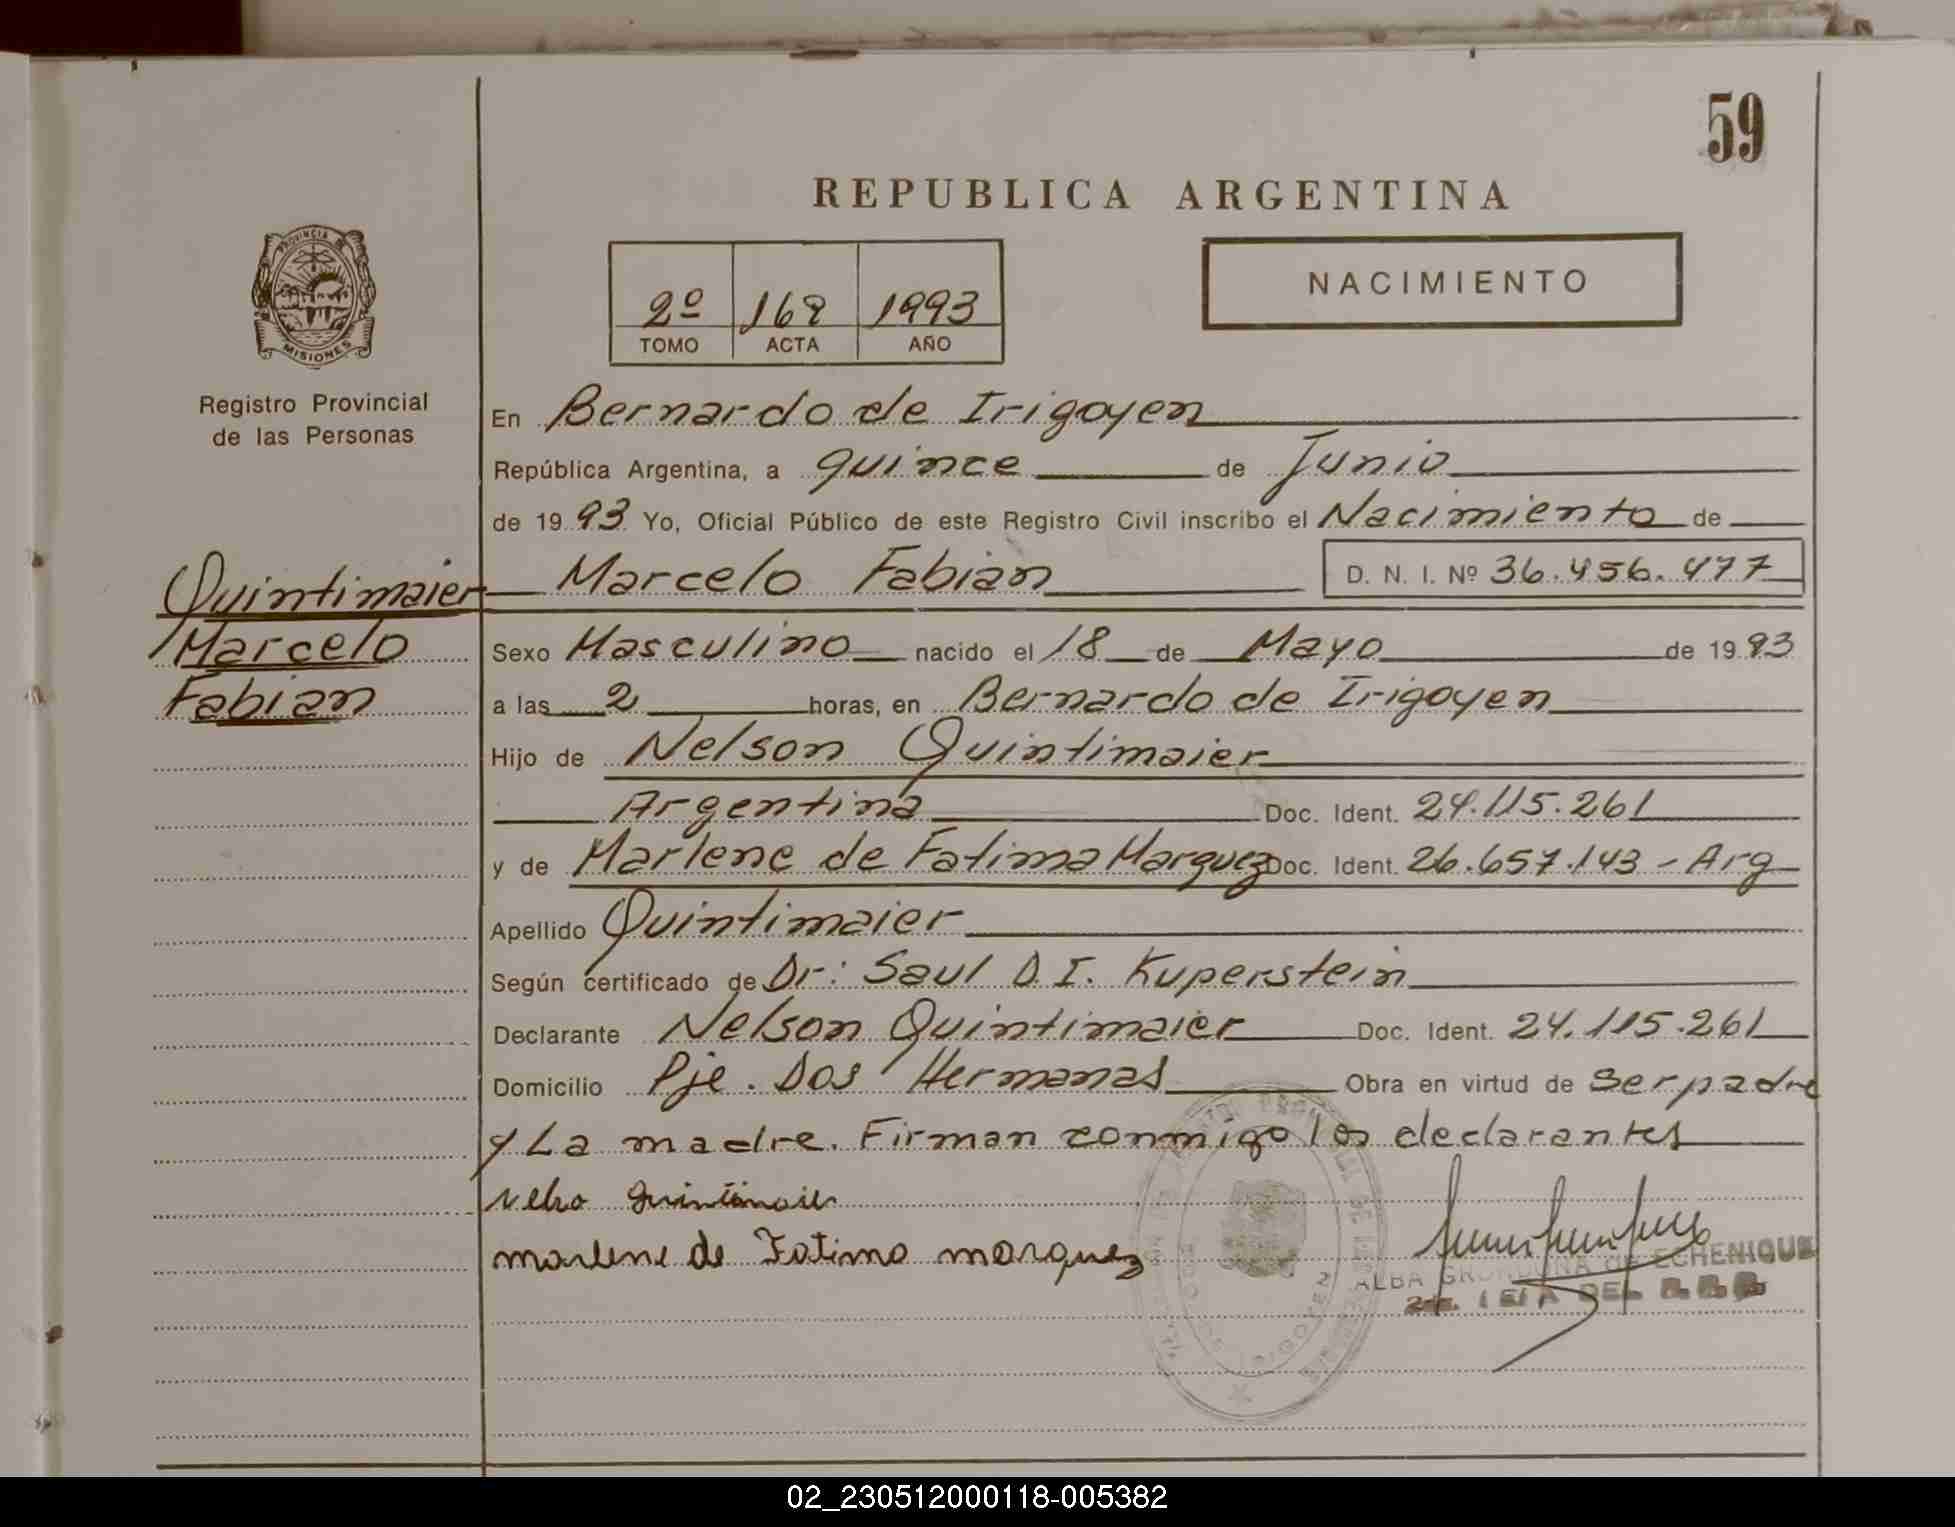 59
REPUBLICA ARGENTINA
PROVINCIA DE
MISIONES
Registro Provincial
de las Personas
2º 168 1993
TOMO ACTA AÑO
NACIMIENTO
En Bernardo de Irigoyen
República Argentina, a quince de Junio
de 1993 Yo, Oficial Público de este Registro Civil inscribo el Nacimiento de
Quintimaier Marcelo Fabian D. N. I. Nº 36.456.477
Marcelo Sexo Masculino nacido el 18 de Mayo de 1993
Fabian a las 2 horas, en Bernardo de Irigoyen
Hijo de Nelson Quintimaier
Argentina Doc. Ident. 24.115.261
y de Marlene de Fatima Marquez Doc. Ident. 26.657.143 - Arg
Apellido Quintimaier
Según certificado de Dr: Saul D. I. Kuperstein
Declarante Nelson Quintimaier Doc. Ident. 24.115.261
Domicilio Pje. Dos Hermanas Obra en virtud de ser padre
y La madre. Firman conmigo los declarantes
marlene de Fatima marquez
ALBA GRONDONA de ECHENIQUE
02_230512000118-005382